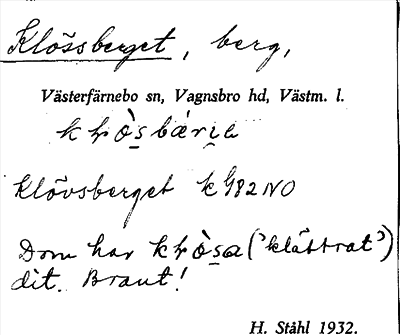 Klössberget, berg,
Västerfärnebo sn, Vagnsbro hd, Västm. l.
Klövsberget k 982 NO
Dom har ('klättrat')
dit. Brant!
H. Ståhl 1932.